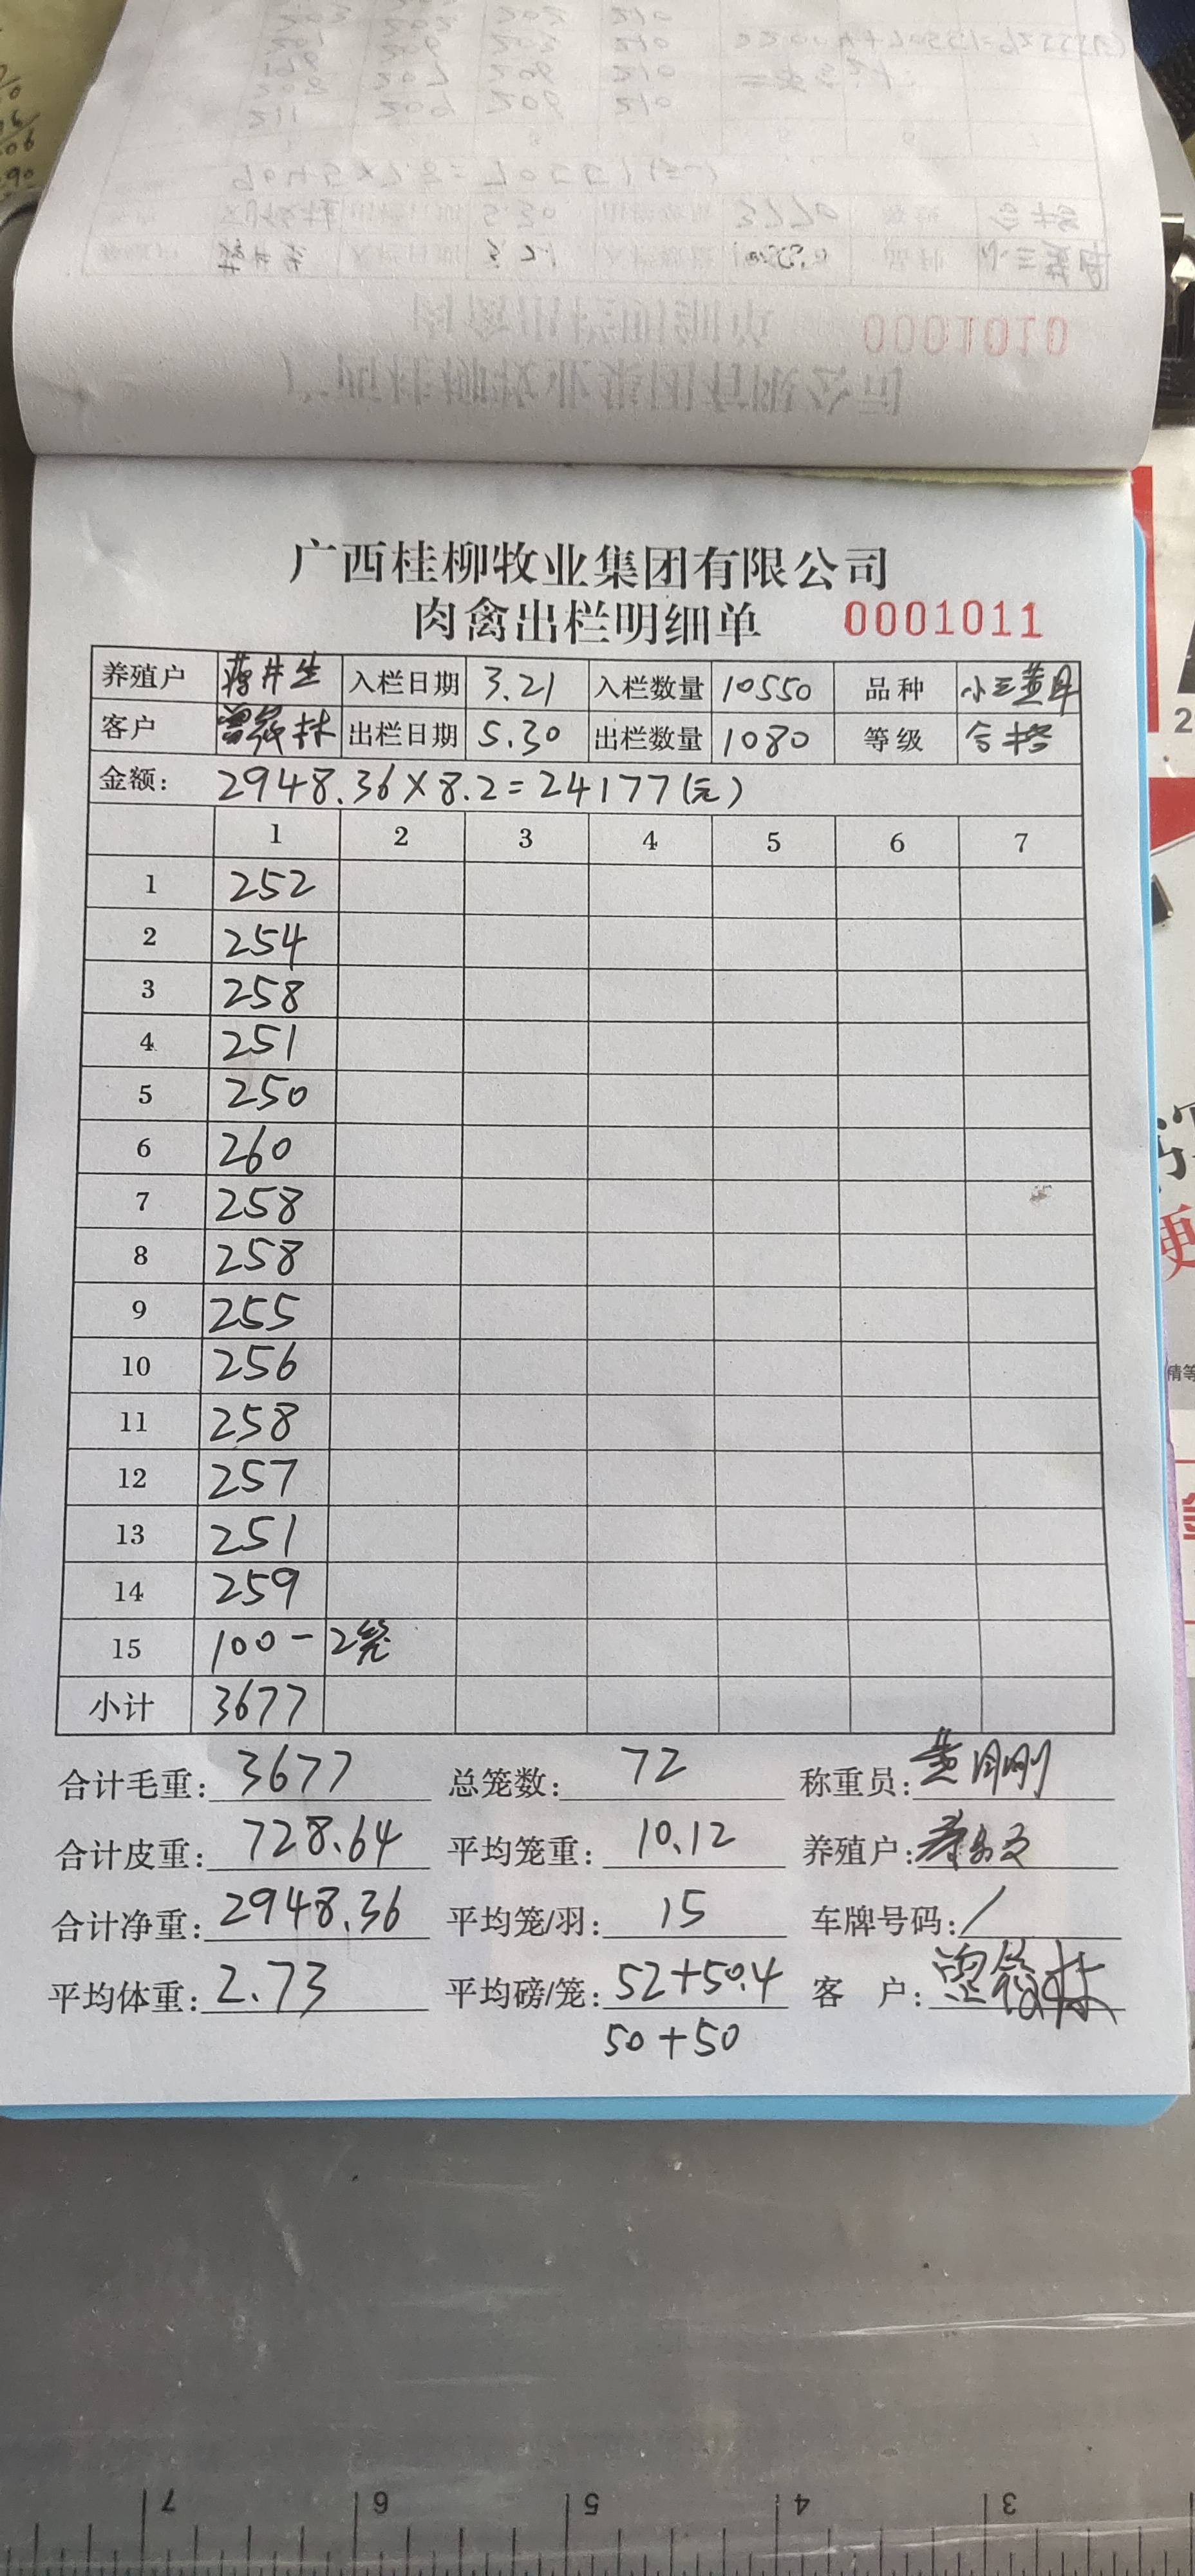 0001010
广西桂柳牧业集团有限公司
肉禽出栏明细单 0001011
养殖户 蒋井生 入栏日期 3.21 入栏数量 10550 品种
客户 出栏日期 5.30 出栏数量 1080 等级 合格
金额: 2948.36×8.2=24177(元)
1 2 3 4 5 6 7
1 252
2 254
3 258
4 251
5 250
6 260
7 258
8 258
9 255
10 256
11 258
12 257
13 251
14 259
15 100-2笼
小计 3677
合计毛重: 3677 总笼数: 72 称重员:
合计皮重: 728.64 平均笼重: 10.12 养殖户:
合计净重: 2948.36 平均笼/羽: 15 车牌号码: /
平均体重: 2.73 平均磅/笼: 52+50.4 客户:
50+50
7 6 5 4 3